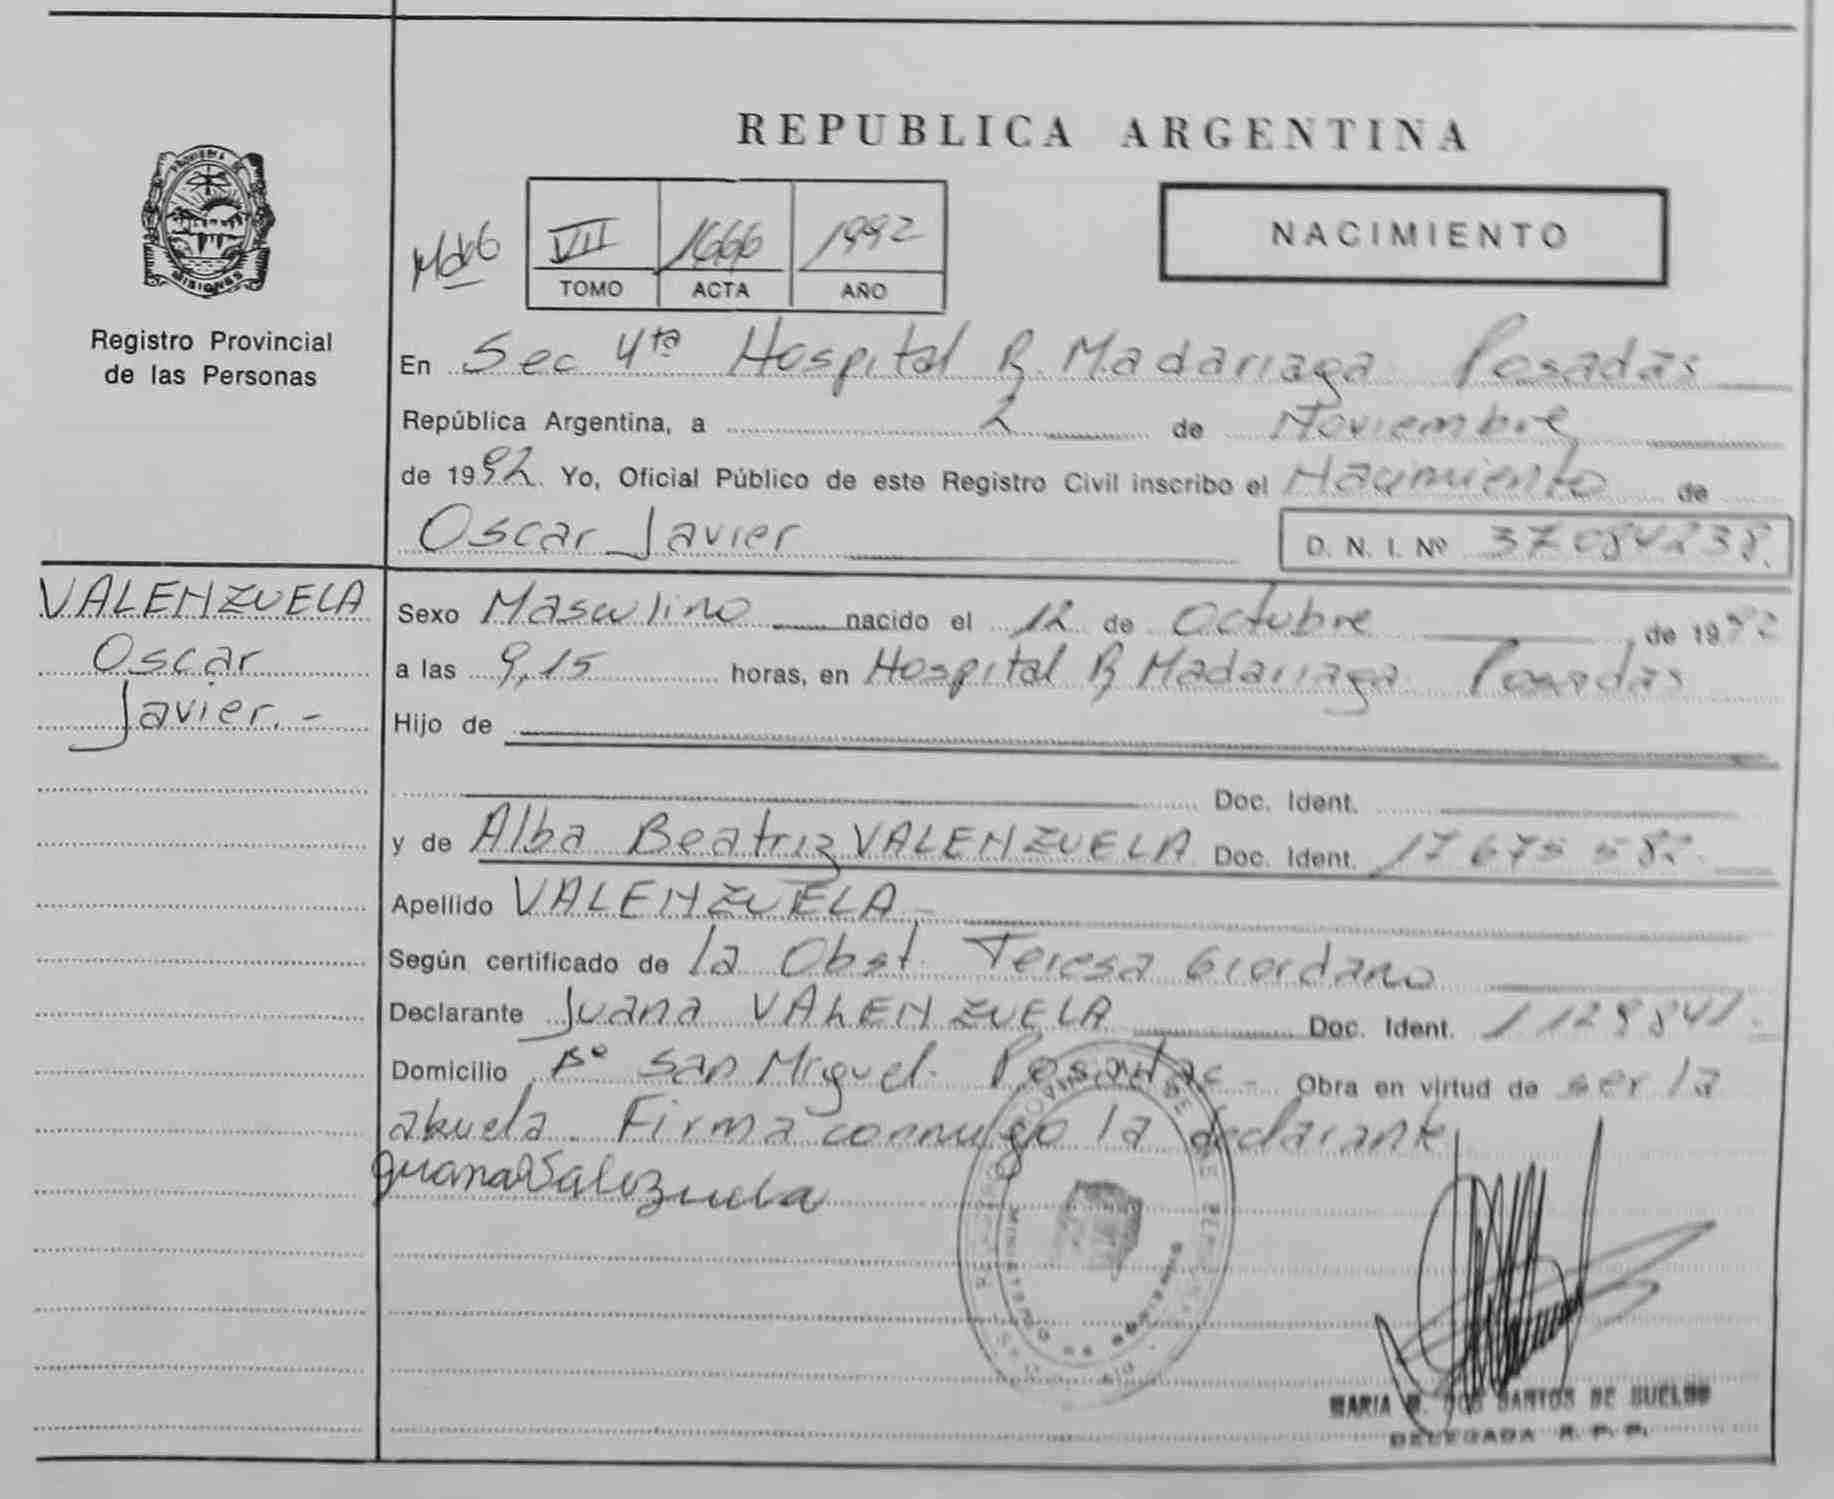 REPUBLICA ARGENTINA
PROVINCIA DE
MISIONES
Registro Provincial
de las Personas
VII 1666 1992
TOMO ACTA AÑO
NACIMIENTO
En Sec 4ta Hospital R. Madariaga Posadas
República Argentina, a 2 de Noviembre
de 1992. Yo, Oficial Público de este Registro Civil inscribo el Nacimiento de
Oscar Javier D. N. I. Nº 37084238.
VALENZUELA
Oscar
Javier.-
Sexo Masculino nacido el 12 de Octubre de 1992
a las 9,15 horas, en Hospital R Madariaga Posadas
Hijo de
Doc. Ident.
y de Alba Beatriz VALENZUELA Doc. Ident. 17 675 582.
Apellido VALENZUELA
Según certificado de la Obst. Teresa Giordano
Declarante Juana VALENZUELA Doc. Ident. 1129841.
Domicilio Bº San Miguel. Posadas - Obra en virtud de ser la
abuela. Firma conmigo la declarante
Juana Valezuela
MINISTERIO DE GOBIERNO
MARIA DOS SANTOS DE BUELOS
DELEGADA R. P. P.